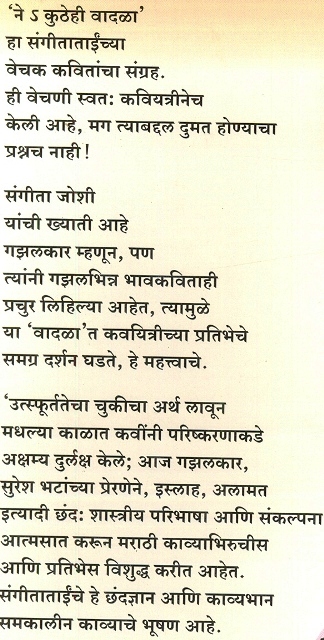 ‘ने ऽ कुठेही वादळा’
हा संगीताताईंच्या
वेचक कवितांचा संग्रह.
ही वेचणी स्वत: कवियत्रीनेच
केली आहे, मग त्याबद्दल दुमत होण्याचा
प्रश्नच नाही!
संगीता जोशी
यांची ख्याती आहे
गझलकार म्हणून, पण
त्यांनी गझलभिन्न भावकविताही
प्रचुर लिहिल्या आहेत, त्यामुळे
या ‘वादळा’त कवयित्रीच्या प्रतिभेचे
समग्र दर्शन घडते, हे महत्त्वाचे.
‘उत्स्फूर्ततेचा चुकीचा अर्थ लावून
मधल्या काळात कवींनी परिष्करणाकडे
अक्षम्य दुर्लक्ष केले; आज गझलकार,
सुरेश भटांच्या प्रेरणेने, इस्लाह, अलामत
इत्यादी छंद: शास्त्रीय परिभाषा आणि संकल्पना
आत्मसात करून मराठी काव्याभिरुचीस
आणि प्रतिभेस विशुद्ध करीत आहेत.
संगीताताईंचे हे छंदज्ञान आणि काव्यभान
समकालीन काव्याचे भूषण आहे.